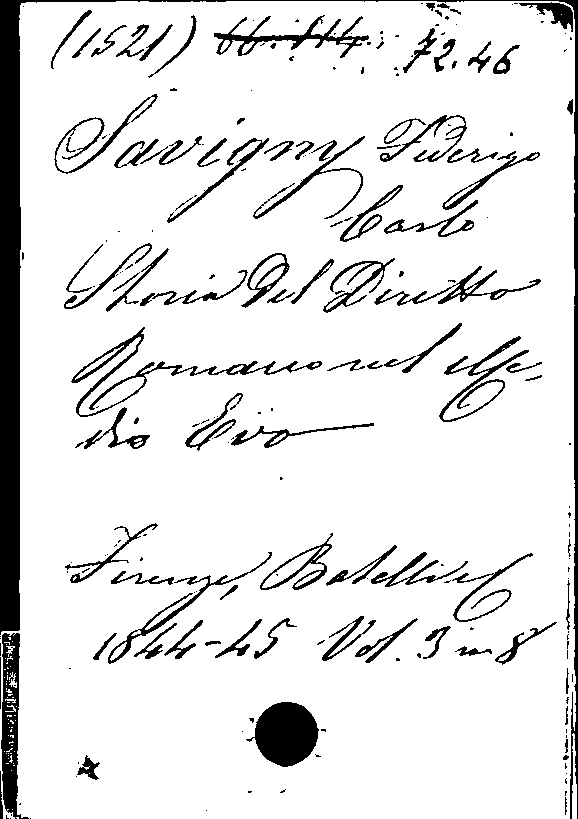 (1521) 66.114. 72.46
Savigny Federigo
Carlo
Storia del Diritto
Romano nel Me-
dio Evo
Firenze, Batelli e C
1844-45 Vol. 3 in 8